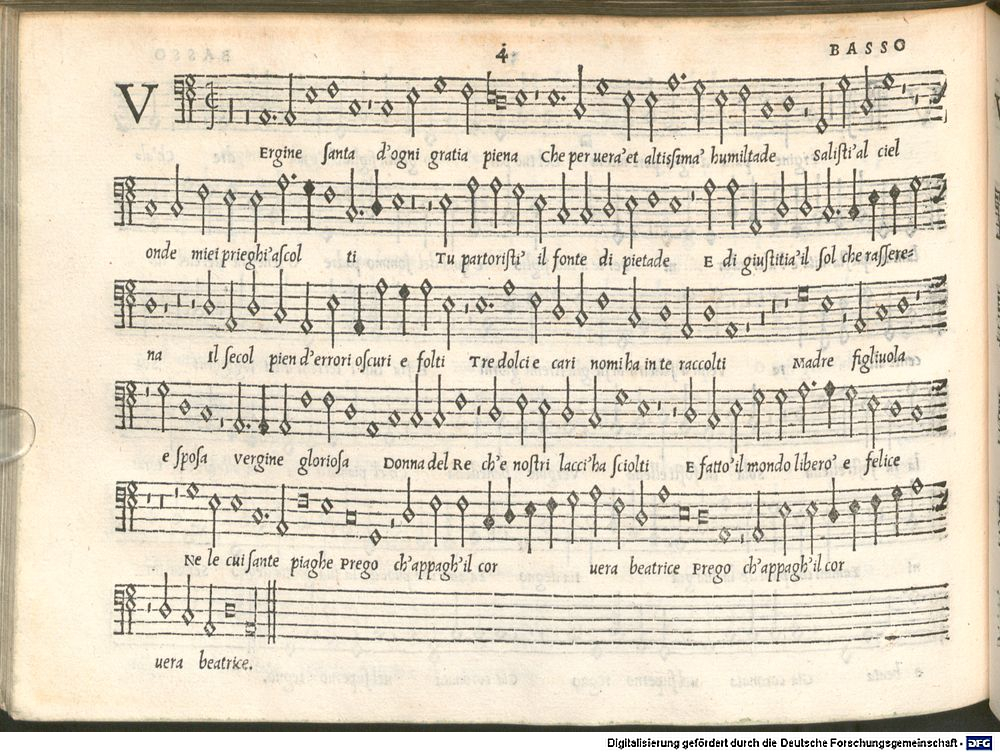 4
BASSO
VErgine ſanta d'ogni gratia piena Che per uera' et altiſſima' humiltade Saliſti' al ciel
onde miei prieghi' aſcol ti Tu partoriſti' il fonte di pietade E di giuſtitia' il ſol che raſſere=
na Il ſecol pien d'errori oſcuri e folti Tre dolci e cari nomi ha in te raccolti Madre figliuola
e ſpoſa Vergine glorioſa Donna del Re ch'e noſtri lacci' ha ſciolti E fatto' il mondo libero' e felice
Ne le cui ſante piaghe Prego ch'appagh' il cor uera beatrice Prego ch'appagh' il cor
uera beatrice.
Digitalisierung gefördert durch die Deutsche Forschungsgemeinschaft - DFG